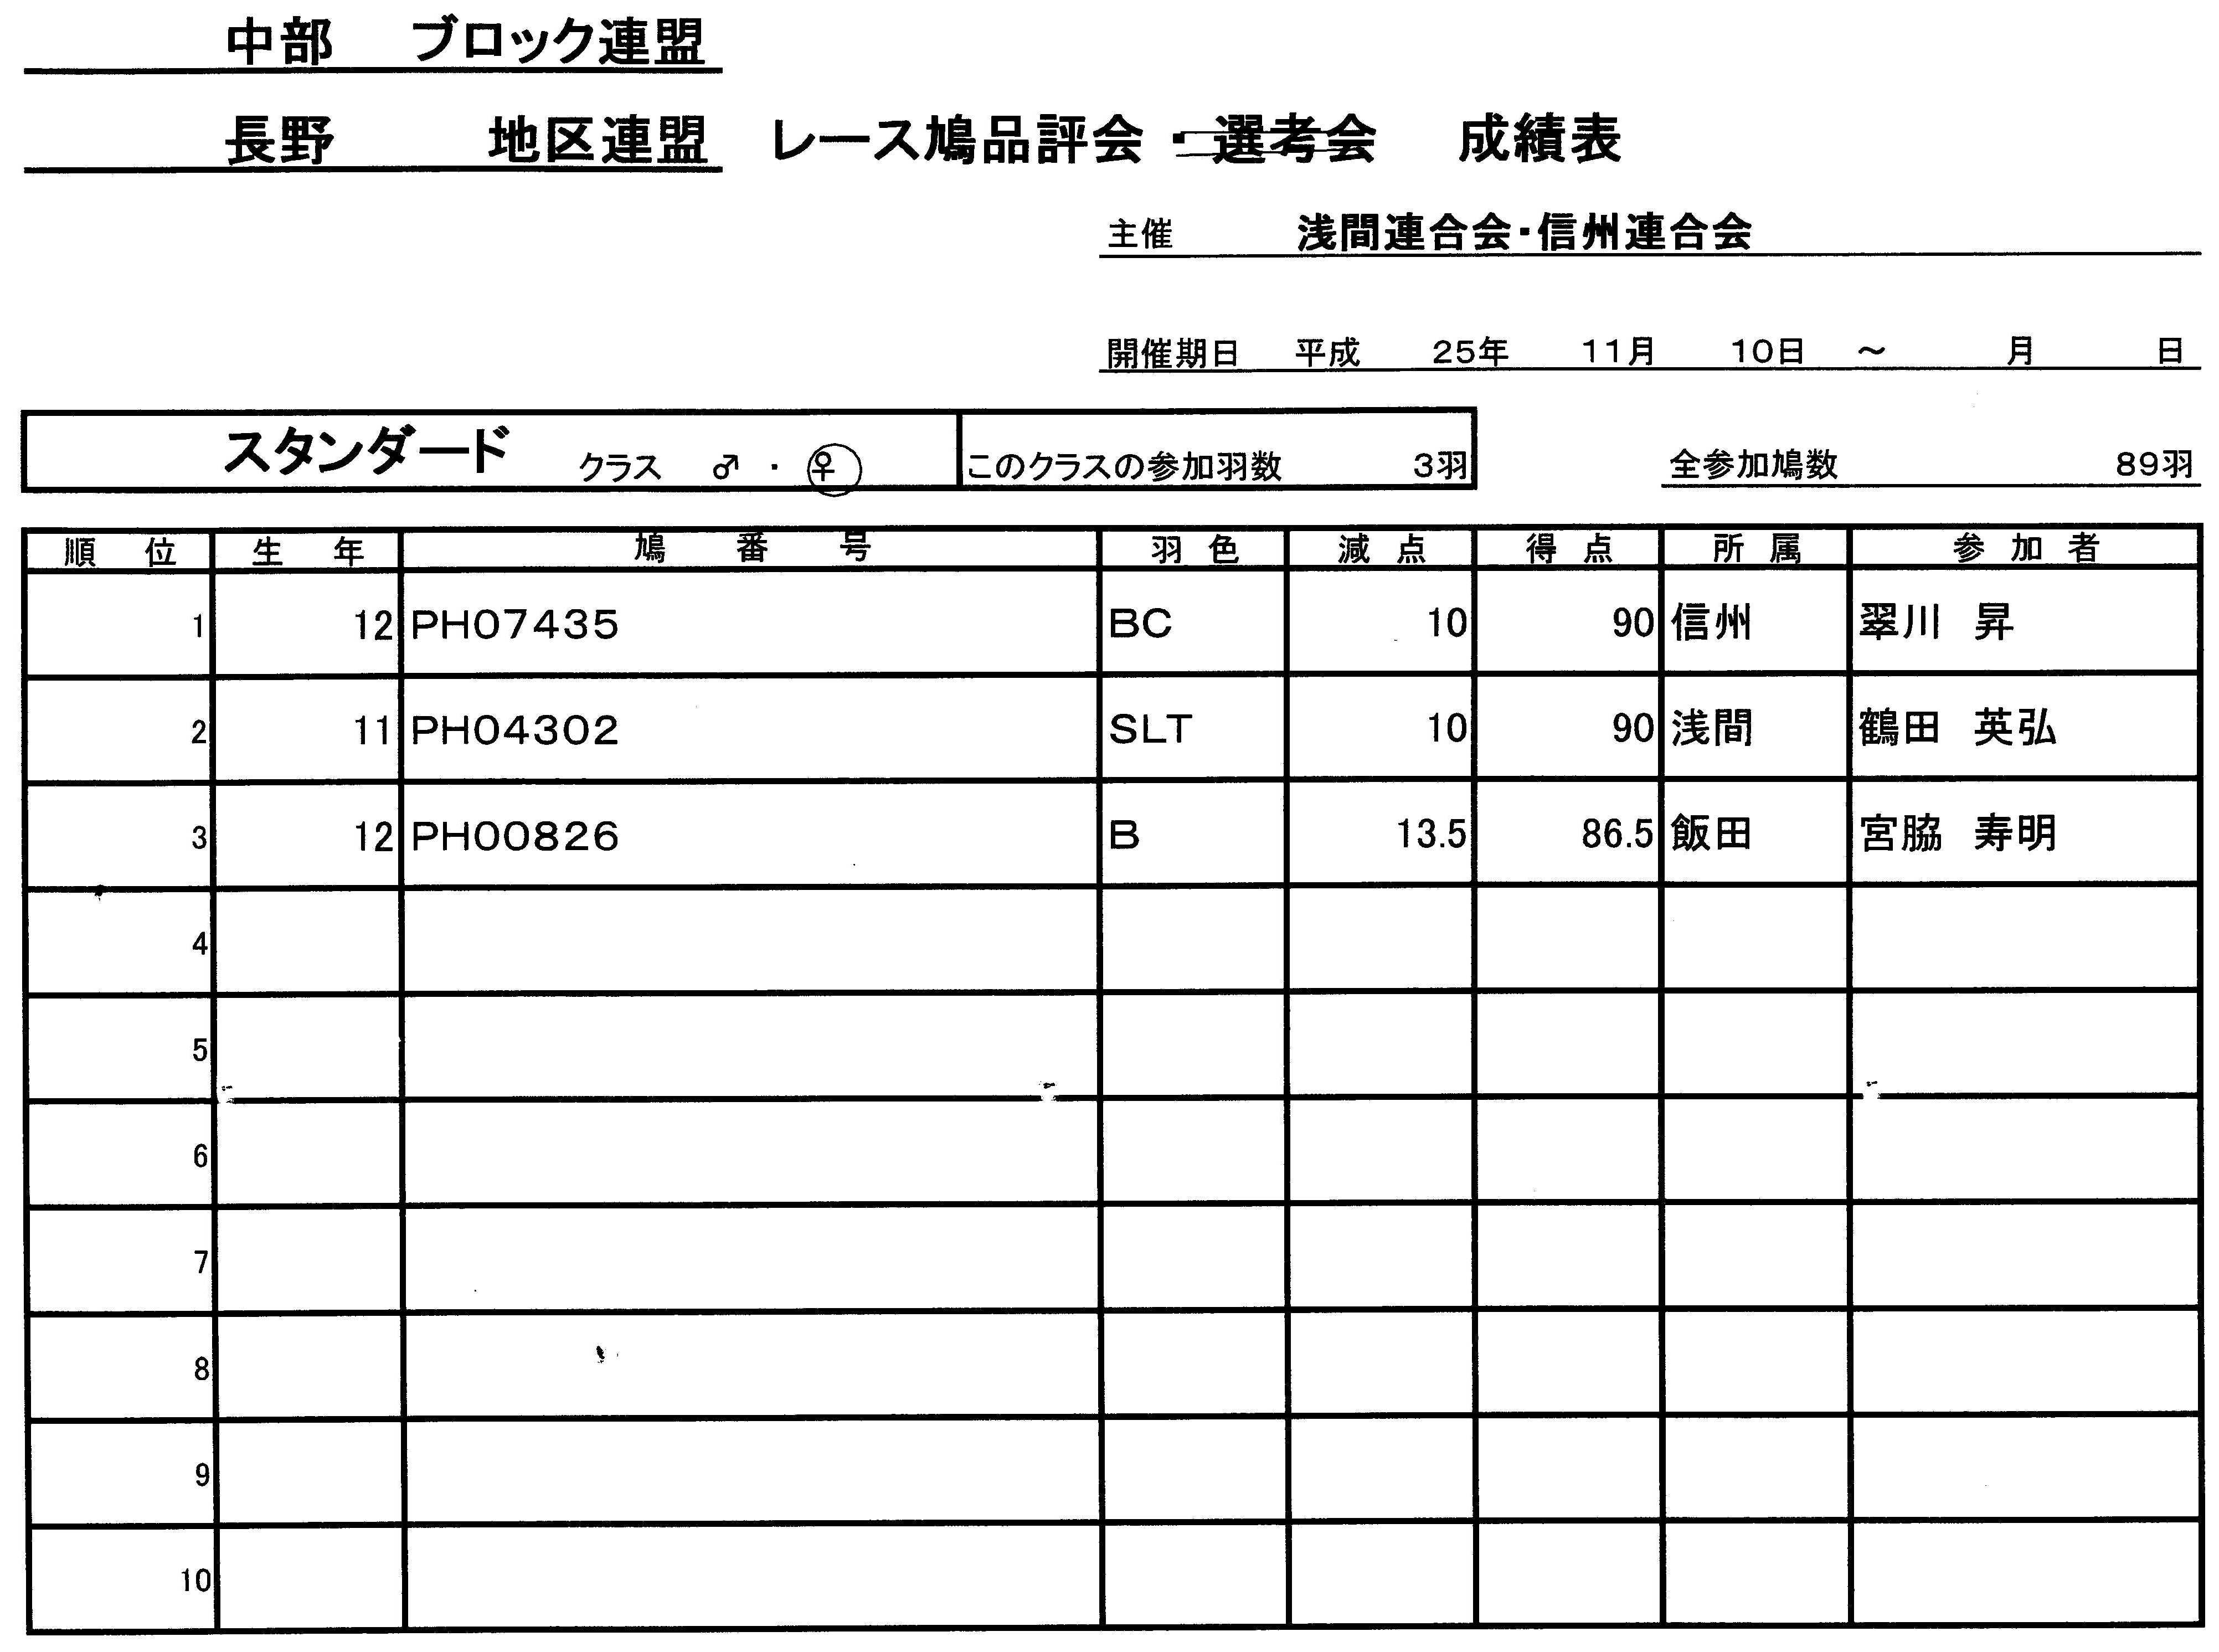 中部 ブロック連盟
長野 地区連盟 レース鳩品評会・選考会 成績表
主催 浅間連合会・信州連合会
開催期日 平成 25年 11月 10日 ～ 月 日
スタンダード クラス ♂ ・ ♀ このクラスの参加羽数 3羽 全参加鳩数 89羽
順位 生年 鳩番号 羽色 減点 得点 所属 参加者
1 12 PH07435 BC 10 90 信州 翠川 昇
2 11 PH04302 SLT 10 90 浅間 鶴田 英弘
3 12 PH00826 B 13.5 86.5 飯田 宮脇 寿明
4
5
6
7
8
9
10